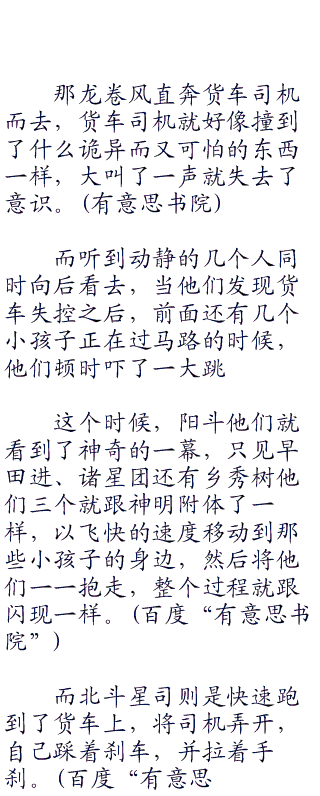 那龙卷风直奔货车司机
而去，货车司机就好像撞到
了什么诡异而又可怕的东西
一样，大叫了一声就失去了
意识。(有意思书院)
而听到动静的几个人同
时向后看去，当他们发现货
车失控之后，前面还有几个
小孩子正在过马路的时候，
他们顿时吓了一大跳
这个时候，阳斗他们就
看到了神奇的一幕，只见早
田进、诸星团还有乡秀树他
们三个就跟神明附体了一
样，以飞快的速度移动到那
些小孩子的身边，然后将他
们一一抱走，整个过程就跟
闪现一样。(百度“有意思书
院”)
而北斗星司则是快速跑
到了货车上，将司机弄开，
自己踩着刹车，并拉着手
刹。(百度“有意思